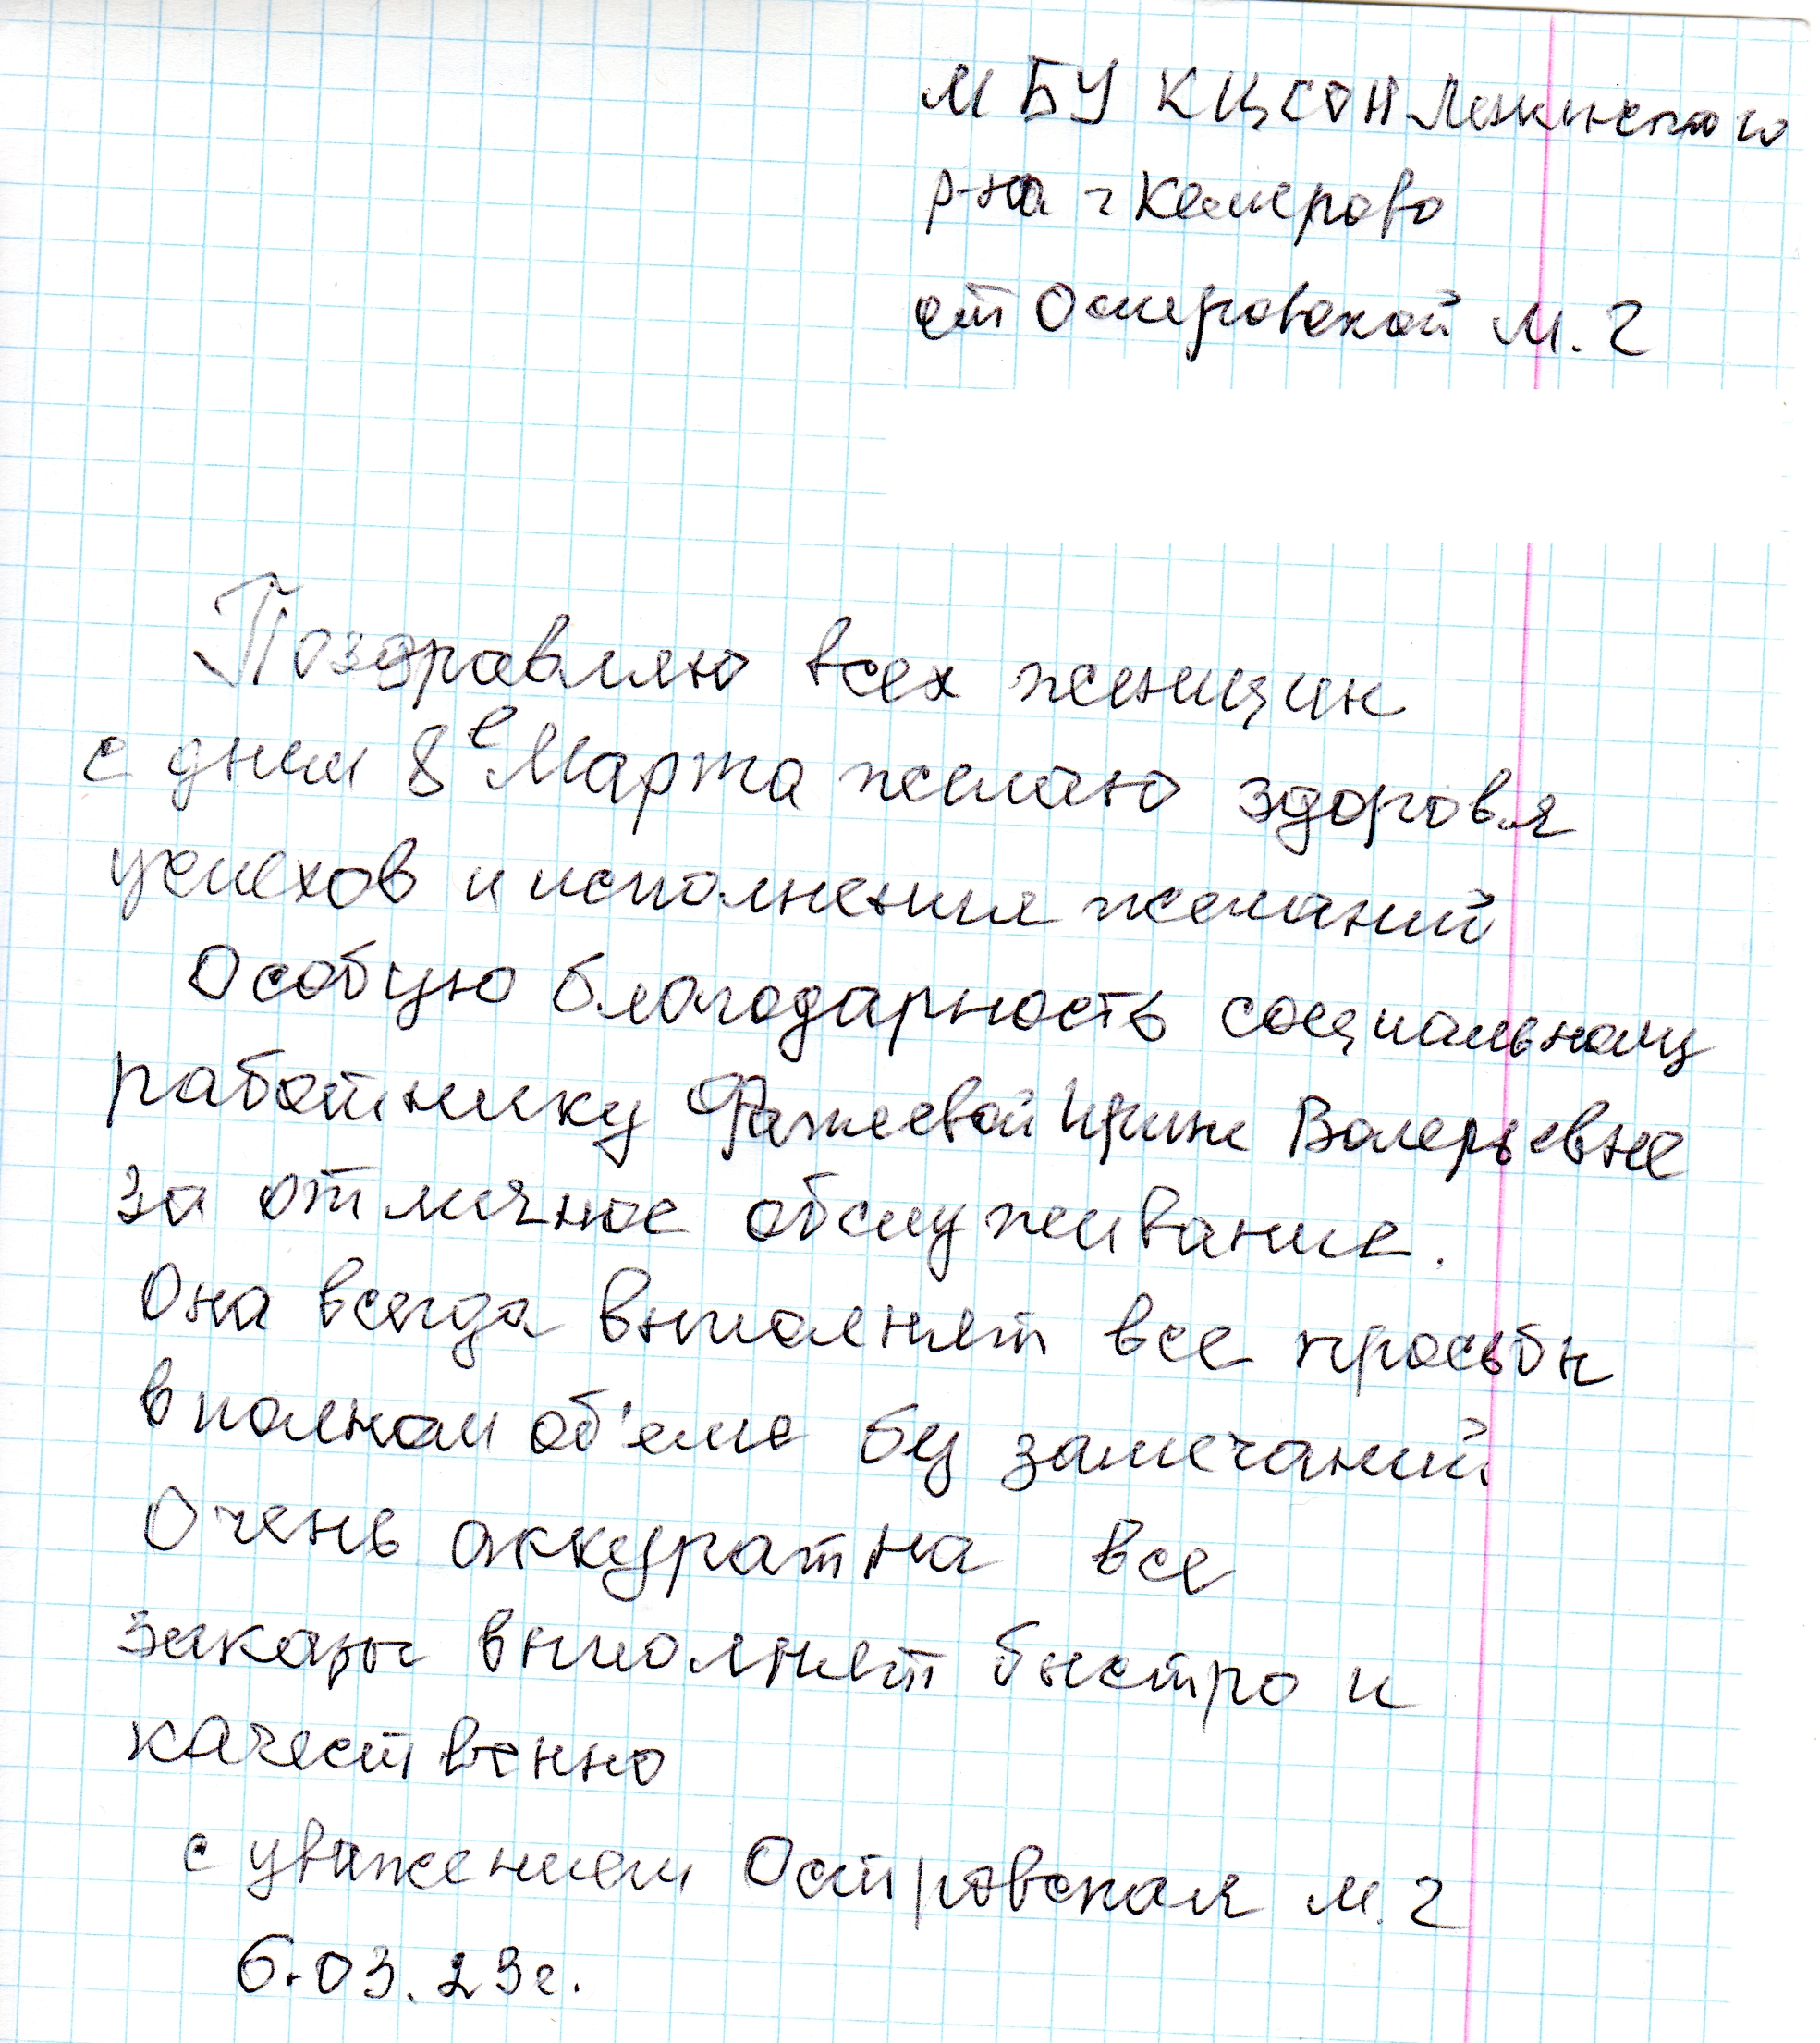 МБУ КЦСОН Ленинского
р-на г Кемерово
от Островской М. Г
Поздравляю всех женщин
с днем 8е Марта желаю здоровя
успехов и исполнения желаний
Особую благодарность социальному
работнику Фатеевой Ирине Валерьевне
за отличное обслуживание.
Она всегда выполнят все просьбы
в полном об'еме без замечаний
Очень аккуратна все
заказы выполнят быстро и
качественно
с уважением Островская М. Г
6.03.23г.